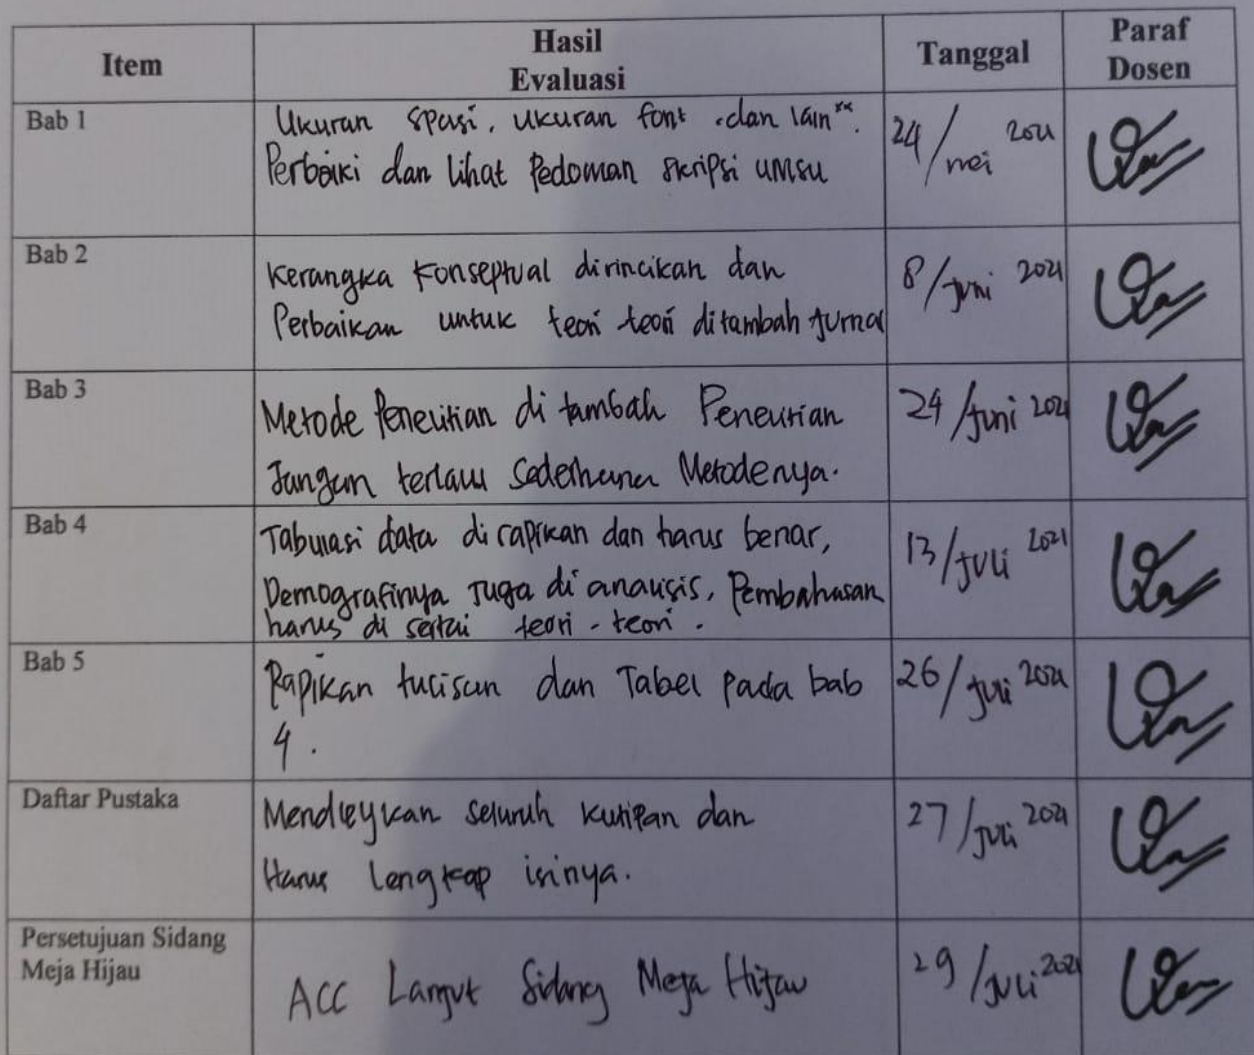 Item
Hasil
Evaluasi
Tanggal
Paraf
Dosen
Bab 1
Ukuran spasi, ukuran font .dan lain".
Perbaiki dan lihat Pedoman skripsi UMSU
24/mei 2021
Bab 2
Kerangka Konseptual dirincikan dan
Perbaikan untuk teori teori ditambah Jurnal
8/Juni 2021
Bab 3
Metode Penelitian di tambah Penelitian
Jangan terlalu Sederhana Metodenya.
24/Juni 2021
Bab 4
Tabulasi data di rapikan dan harus benar,
Demografinya Juga di analisis, Pembahasan
harus di sertai teori - teori.
13/Juli 2021
Bab 5
Rapikan tulisan dan Tabel pada bab
4.
26/Juli 2021
Daftar Pustaka
Mendleykan seluruh kutipan dan
Harus Lengkap isinya.
27/Juli 2021
Persetujuan Sidang
Meja Hijau
ACC Lanjut Sidang Meja Hijau
29/Juli 2021